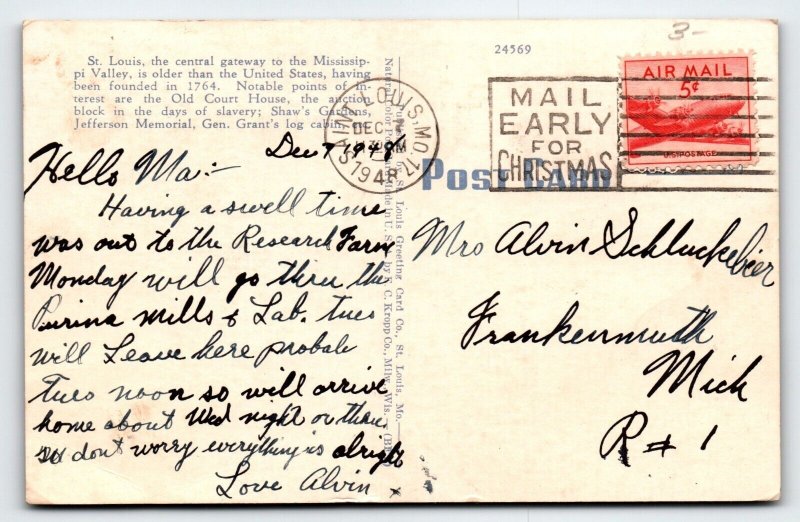 3-
24569
St. Louis, the central gateway to the Mississip-
pi Valley, is older than the United States, having
been founded in 1764. Notable points of in-
terest are the Old Court House, the auction
block in the days of slavery; Shaw's Gardens,
Jefferson Memorial, Gen. Grant's log cabin,
SAINT LOUIS, MO. 17
DEC 7
PM
1948
MAIL
EARLY
FOR
CHRISTMAS
AIR MAIL
5¢
U.S. POSTAGE
POST CARD
Dec 7 1948
Hello Ma:-
Having a swell time
was out to the Research Farm
Monday will go thru the
Purina Mills & Lab. tues
will Leave here probale
Tues noon so will arrive
home about Wed night or thur
so dont worry everything is alright
Love Alvin x
St. Louis Greeting Card Co., St. Louis, Mo.
Natural Color Post Card Made in U. S. A. by E. C. Kropp Co., Milw., Wis.
Mrs Alvin Schluckebier
Frankenmuth
Mich
R # 1